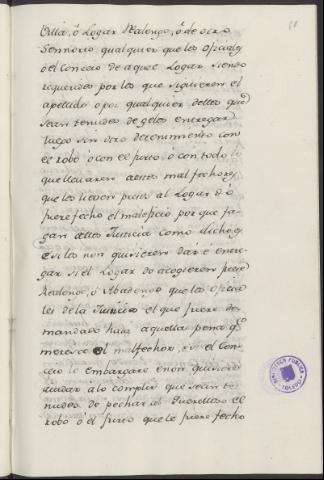 Villa, ó Logar Realengo, ó de otro
Sennorio qualquier que los oficiales
ó el Conceio de aquel Logar siendo
requeridos por los que siguieren el
apellido ó por qualquier dellos que
sean tenudos de gelos entregar
luego sin otro detenimiento con
el robo ó con el furto ó con todo lo
que llevaren a estos malfechores
que los lieven presos al Logar dó
fuere fecho el maleficio por que fa-
gan dellos Justicia como dicho es
E si los non quisieren dar é entre-
gar si el Logar do acogieren fuere
Realengo, ó Abadengo que los oficia-
les de la Justicia el que fuere de-
mandado haia aquella pena q.e
merescie el malfechor, é si el Con-
ceio lo embargare é non quisiere
aiudar á lo complir que sean te-
nudos de pechar al Querelloso el
robo ó el furto que le fuere fecho
BIBLIOTECA PUBLICA
TOLEDO